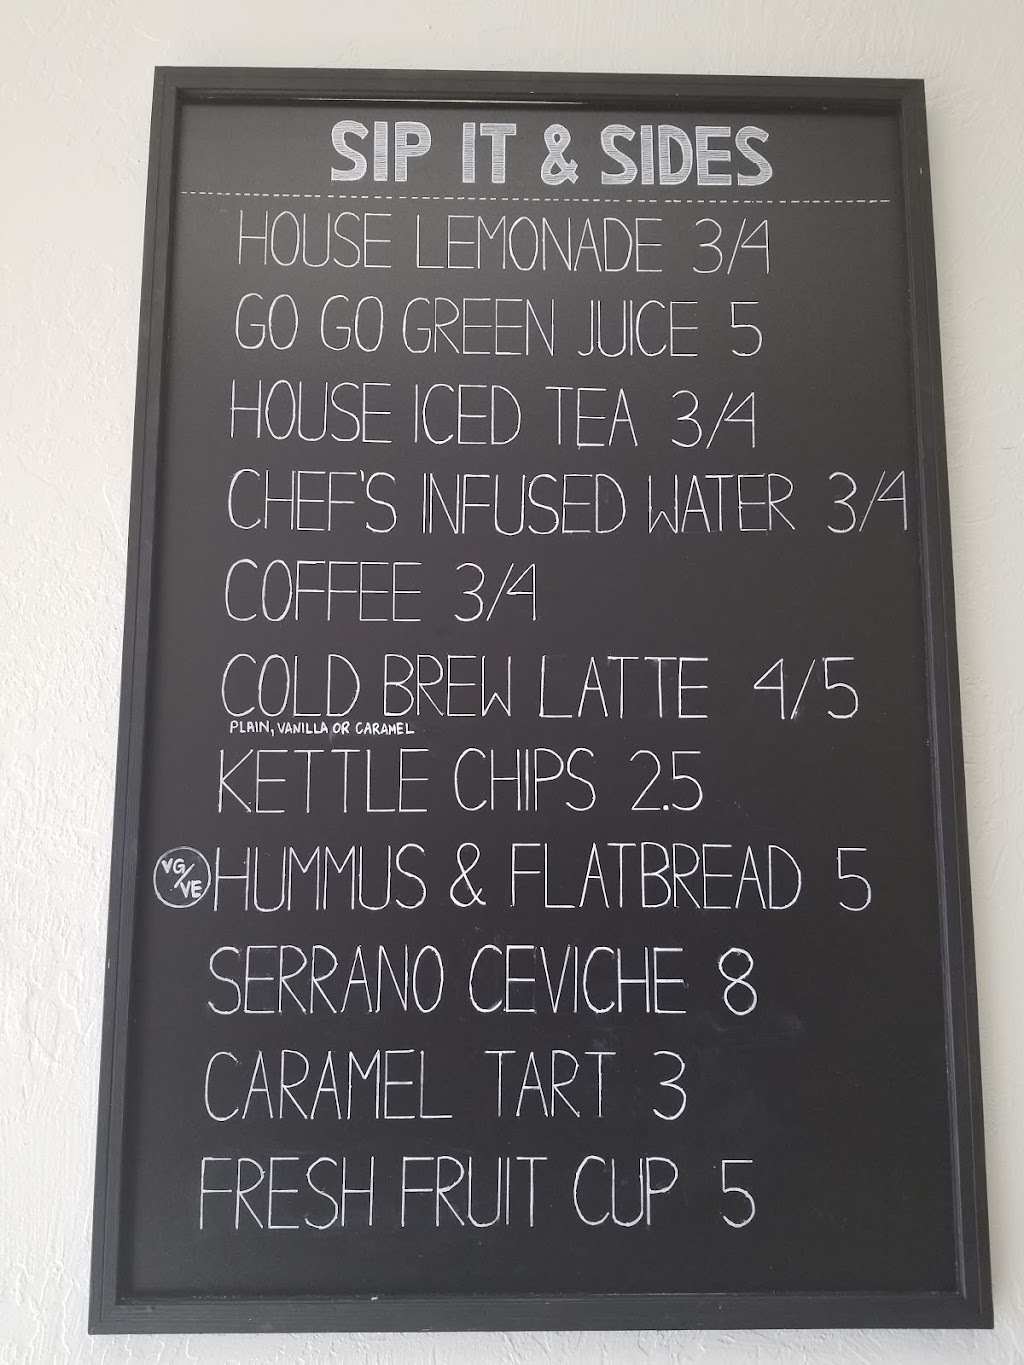 SIP IT & SIDES
HOUSE LEMONADE 3/4
GO GO GREEN JUICE 5
HOUSE ICED TEA 3/4
CHEF'S INFUSED WATER 3/4
COFFEE 3/4
COLD BREW LATTE 4/5
PLAIN, VANILLA OR CARAMEL
KETTLE CHIPS 2.5
VG/VE HUMMUS & FLATBREAD 5
SERRANO CEVICHE 8
CARAMEL TART 3
FRESH FRUIT CUP 5